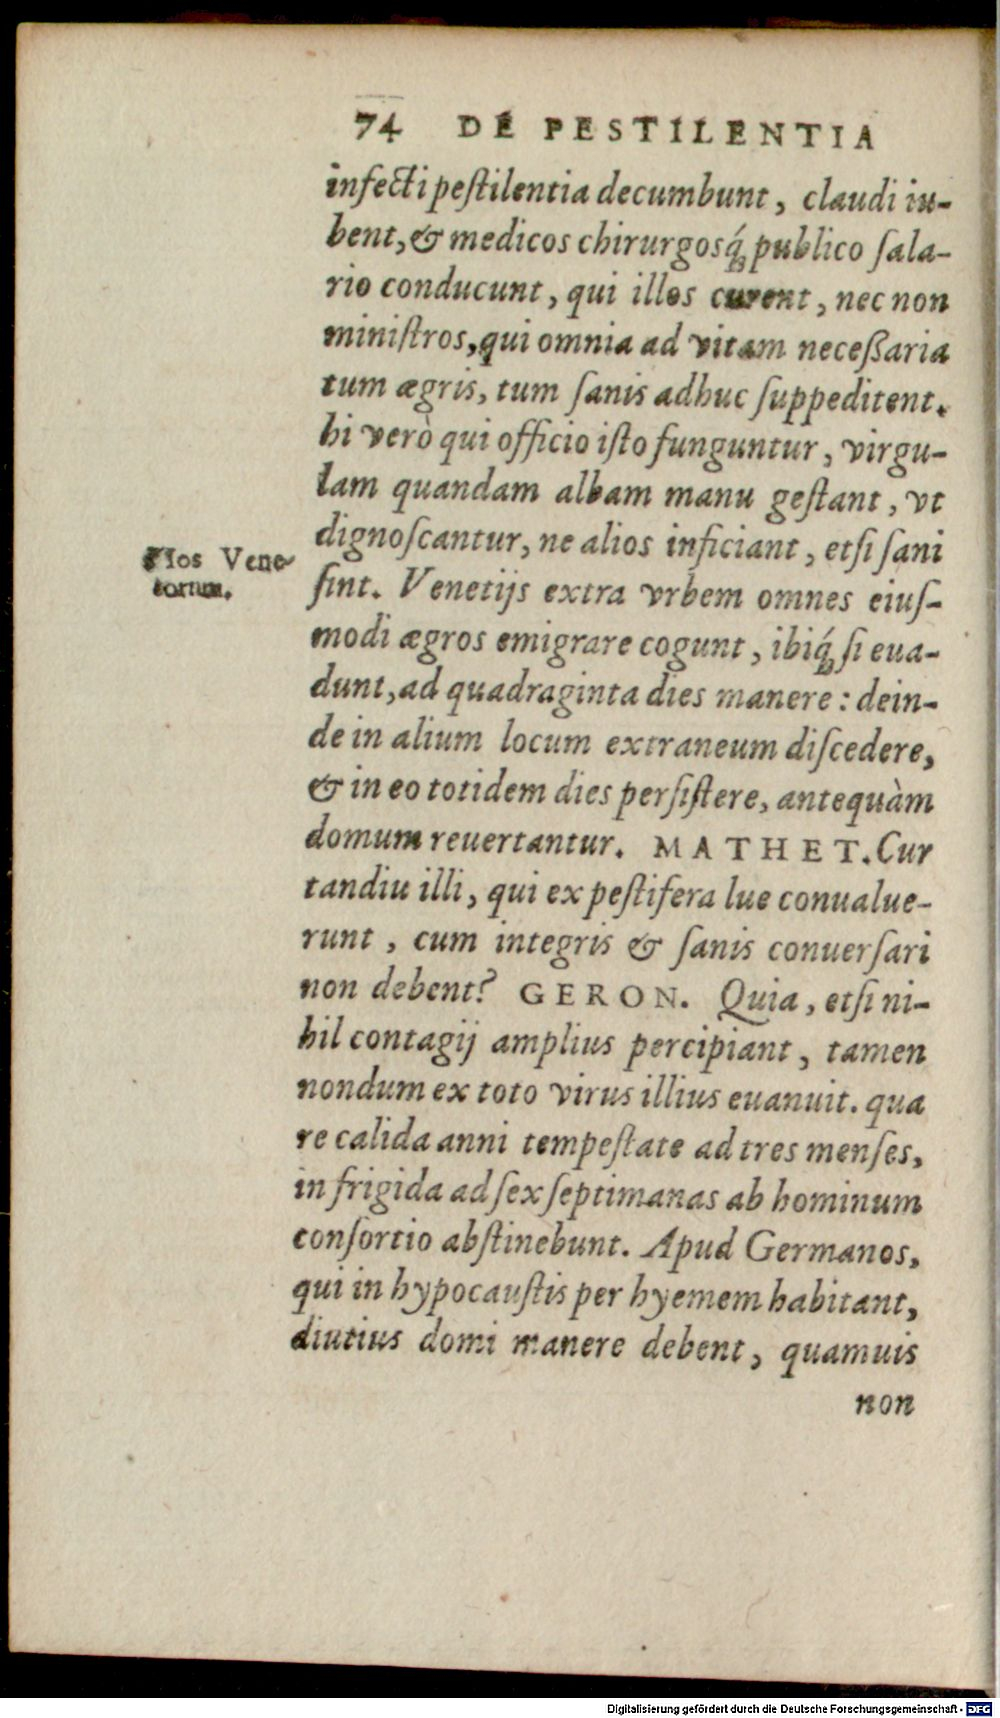 74 DE PESTILENTIA
infecti peſtilentia decumbunt, claudi iu-
bent, & medicos chirurgosq́; publico ſala-
rio conducunt, qui illos curent, nec non
miniſtros, qui omnia ad vitam neceßaria
tum ægris, tum ſanis adhuc ſuppeditent.
hi verò qui officio iſto funguntur, virgu-
lam quandam albam manu geſtant, vt
dignoſcantur, ne alios inficiant, etſi ſani
Mos Vene-
torum.
ſint. Venetijs extra vrbem omnes eiuſ-
modi ægros emigrare cogunt, ibiq́; ſi eua-
dunt, ad quadraginta dies manere: dein-
de in alium locum extraneum diſcedere,
& in eo totidem dies perſiſtere, antequàm
domum reuertantur. MATHET. Cur
tandiu illi, qui ex peſtifera lue conualue-
runt, cum integris & ſanis conuerſari
non debent? GERON. Quia, etſi ni-
hil contagij amplius percipiant, tamen
nondum ex toto virus illius euanuit. qua
re calida anni tempeſtate ad tres menſes,
in frigida ad ſex ſeptimanas ab hominum
conſortio abſtinebunt. Apud Germanos,
qui in hypocauſtis per hyemem habitant,
diutius domi manere debent, quamuis
non
Digitalisierung gefördert durch die Deutsche Forschungsgemeinschaft - DFG